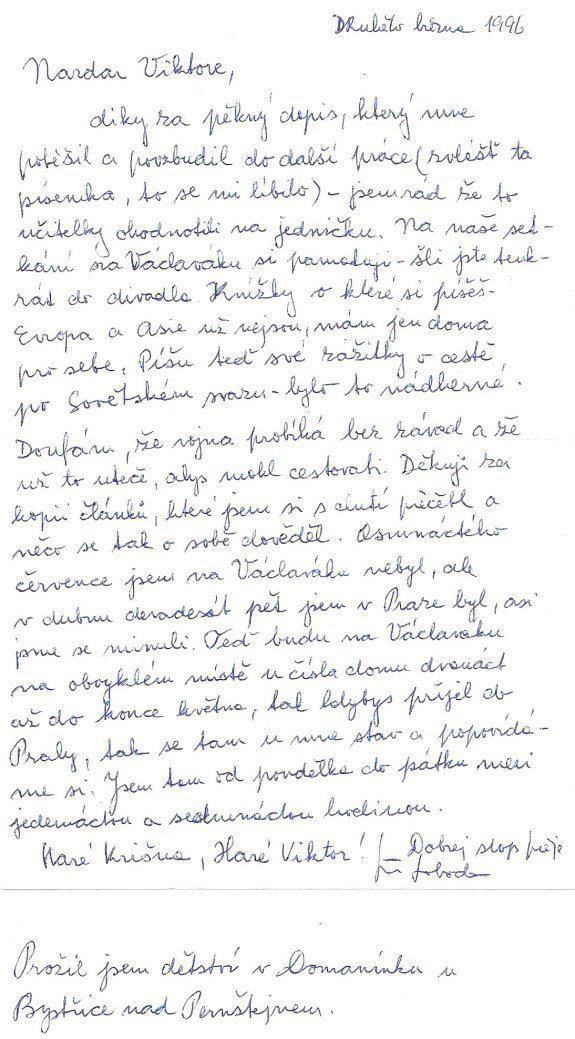 DRuhého března 1996
Nazdar Viktore,
díky za pěkný dopis, který mne
potěšil a povzbudil do další práce (zvlášť ta
písemka, to se mi líbilo) - jsem rád že to
učitelky ohodnotili na jedničku. Na naše set-
kání na Václaváku si pamatuji - šli jste tenk-
rát do divadla. Knížky o které si píšeš -
Evropa a Asie už nejsou, mám jen doma
pro sebe. Píšu teď své zážitky o cestě
po Sovětském svazu - bylo to nádherné.
Doufám, že vojna probíhá bez závad a že
už to uteče, abys mohl cestovati. Děkuji za
kopii článků, které jsem si s chutí přečetl a
něco se tak o sobě dověděl. Osmnáctého
července jsem na Václaváku nebyl, ale
v dubnu devadesát pět jsem v Praze byl, asi
jsme se minuli. Teď budu na Václaváku
na obvyklém místě u čísla domu dvanáct
až do konce května, tak kdybys přijel do
Prahy, tak se tam u mne stav a popovídá-
me si. Jsem tam od pondělka do pátku mezi
jedenáctou a sedmnáctou hodinou.
Haré Krišna, Haré Viktor! Dobrej stop přeje
Prožil jsem dětství v Domanínku u
Bystřice nad Pernštejnem.